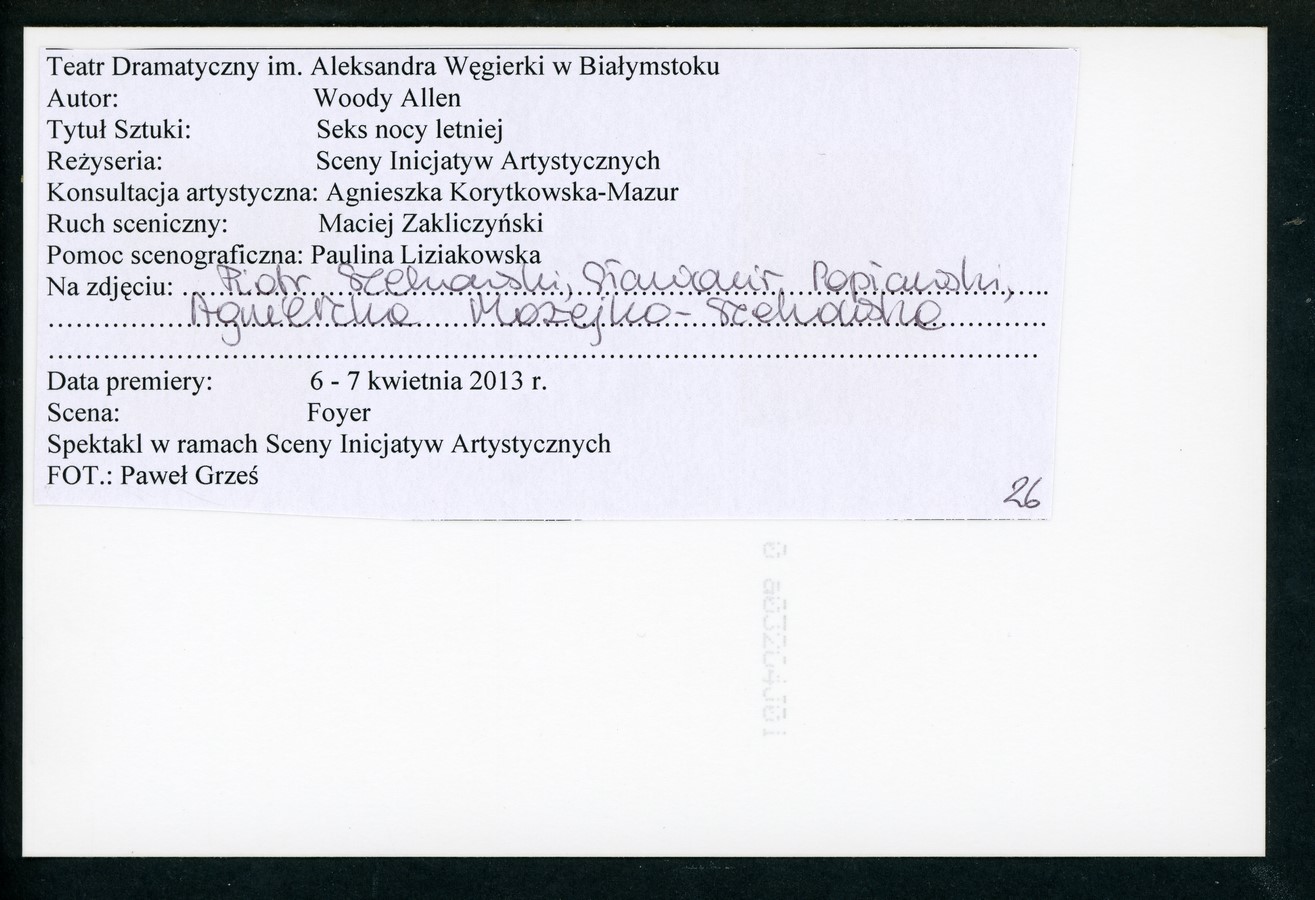 Teatr Dramatyczny im. Aleksandra Węgierki w Białymstoku
Autor: Woody Allen
Tytuł Sztuki: Seks nocy letniej
Reżyseria: Sceny Inicjatyw Artystycznych
Konsultacja artystyczna: Agnieszka Korytkowska-Mazur
Ruch sceniczny: Maciej Zakliczyński
Pomoc scenograficzna: Paulina Liziakowska
Na zdjęciu: Piotr Szekowski, Sławomir Popławski,
Agnieszka Możejko-Szekowska
Data premiery: 6 - 7 kwietnia 2013 r.
Scena: Foyer
Spektakl w ramach Sceny Inicjatyw Artystycznych
FOT.: Paweł Grześ
26